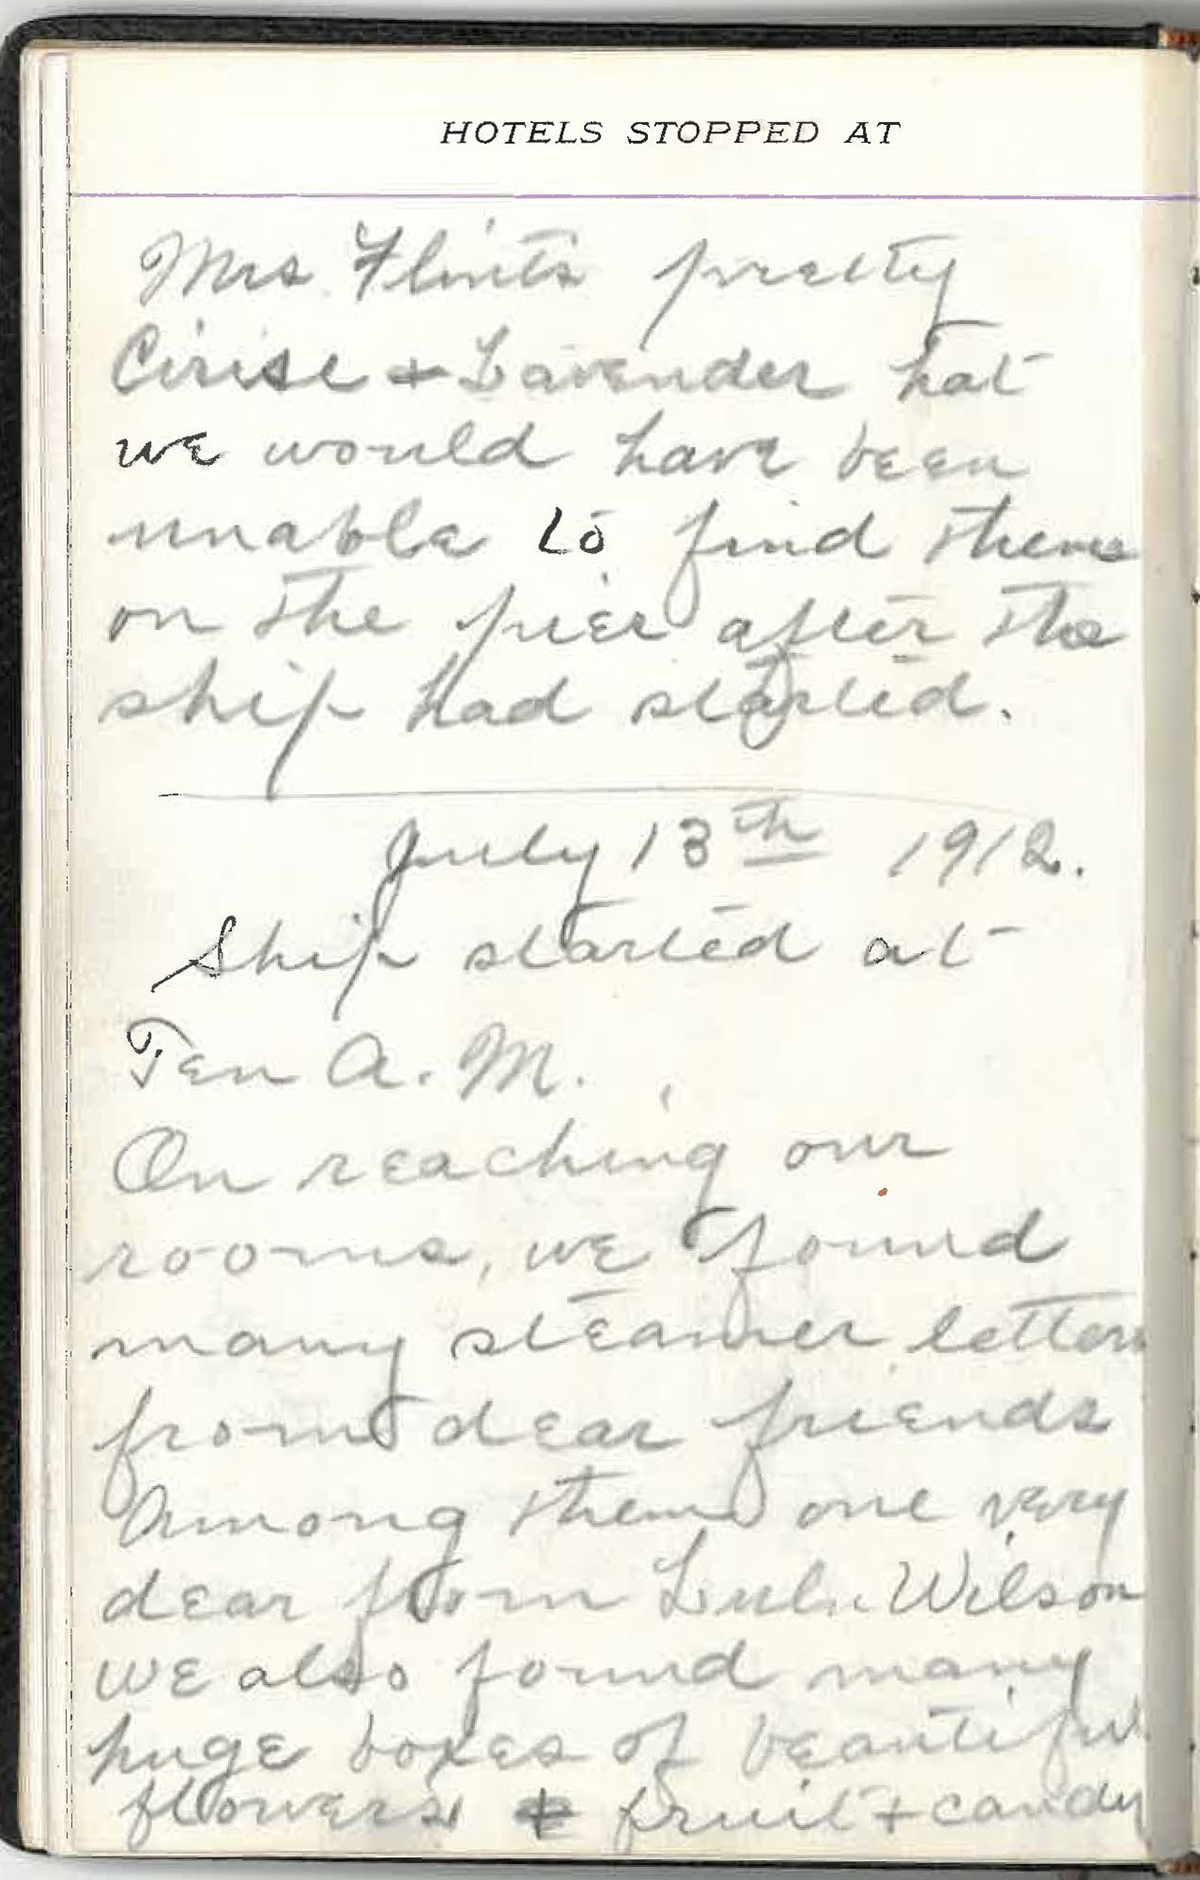 HOTELS STOPPED AT
Mrs. Flint's pretty
Cirise + Lavender hat
we would have been
unable to find them
on the pier after the
ship had started.
July 13th 1912.
Ship started at
Ten A. M.
On reaching our
rooms, we found
many steamer letters
from dear friends
Among them one very
dear from Lulu Wilson
we also found many
huge boxes of beautiful
flowers + fruit + candy